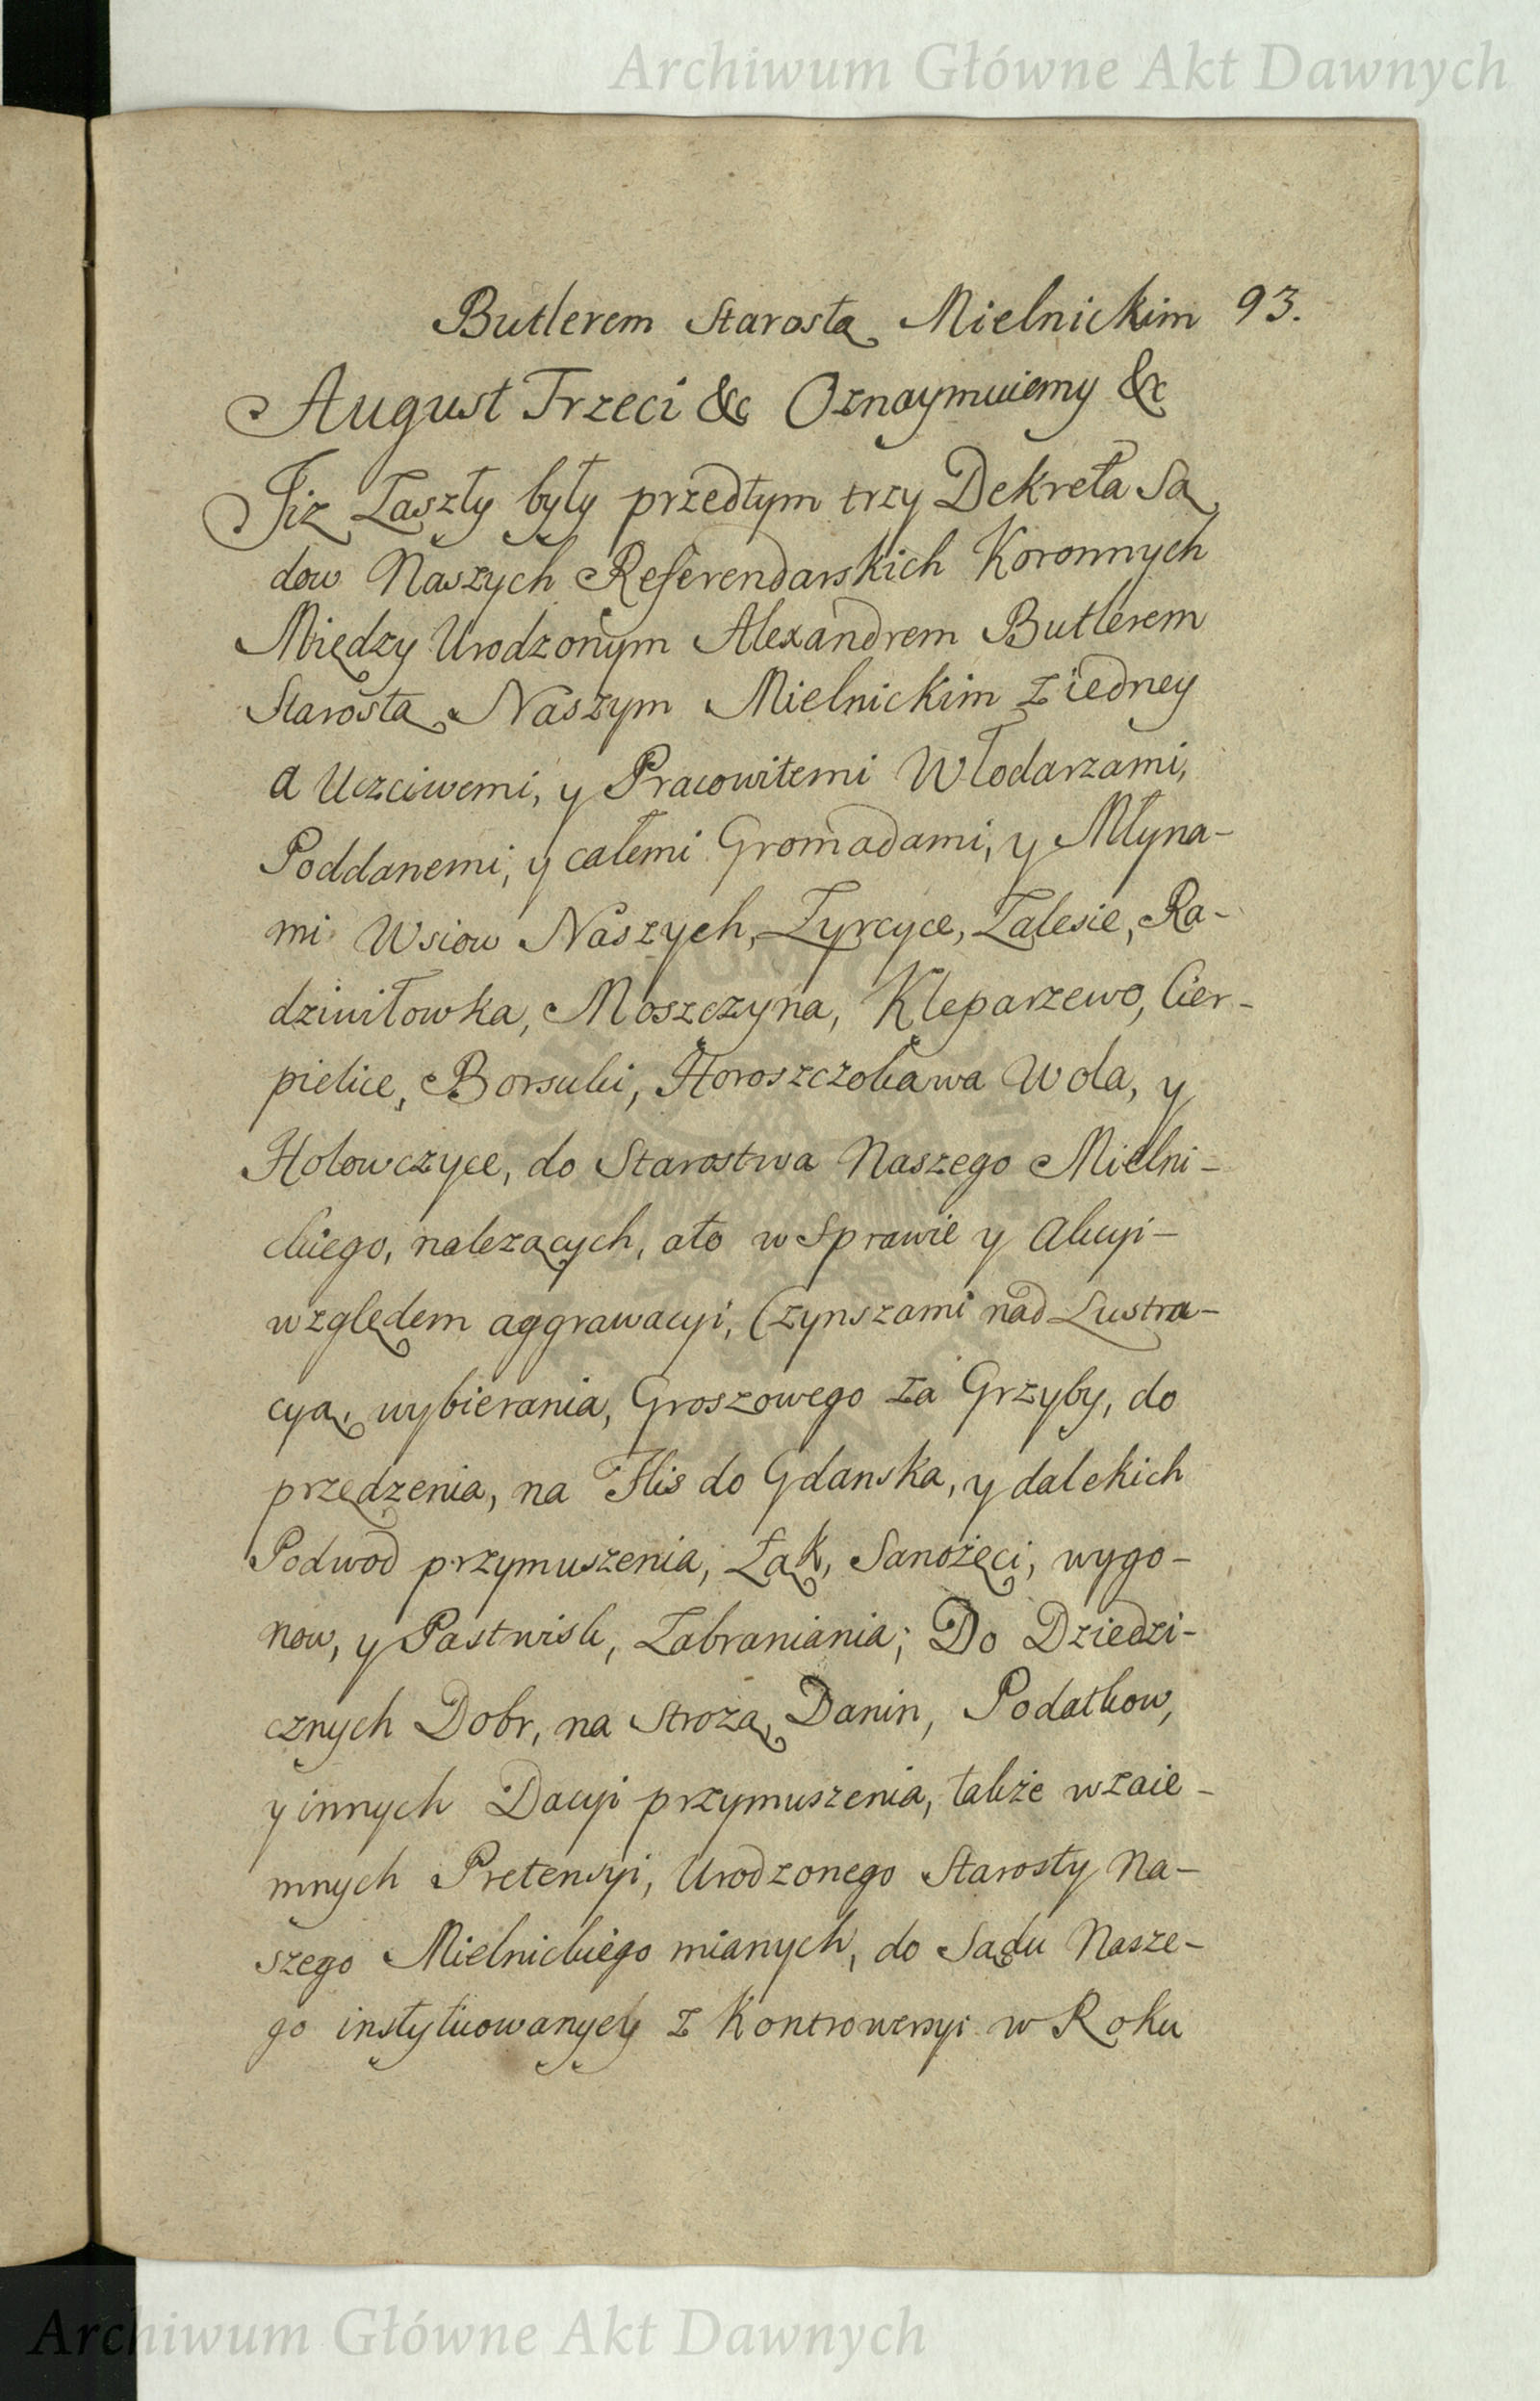 Archiwum Główne Akt Dawnych
Butlerem Starostą Mielnickim 93.
August Trzeci &c Oznaymuiemy &c
Jiz Zaszły były przedtym trzy Dekreta Są
dow Naszych Referendarskich Koronnych
Między Urodzonym Alexandrem Butlerem
Starostą Naszym Mielnickim z iedney
a Uczciwemi, y Pracowitemi Włodarzami,
Poddanemi, y całemi Gromadami, y Młyna-
mi Wsiow Naszych, Zyrcyce, Zalesie, Ra-
dziwiłowka, Moszczyna, Kleparzewo, Cier-
pielice, Borsuki, Horoszczokawa Wola, y
Holowczyce, do Starostwa Naszego Mielni-
ckiego, nalezących, ato w Sprawie y Akcyi-
względem aggrawacyi, Czynszami nad Lustra-
cyą, wybierania, Groszowego za Grzyby, do
przędzenia, na Flis do Gdanska, y dalekich
Podwod przymuszenia, Łąk, Sanożęci, wygo-
now, y Pastwisk, Zabraniania; Do Dziedzi-
cznych Dobr, na Strożą, Danin, Podatkow,
y innych Dacyi przymuszenia, także wzaie-
mnych Pretensyi, Urodzonego Starosty Na-
szego Mielnickiego mianych, do Sądu Nasze-
go instytuowanych z Kontrowersyi w Roku
Archiwum Główne Akt Dawnych